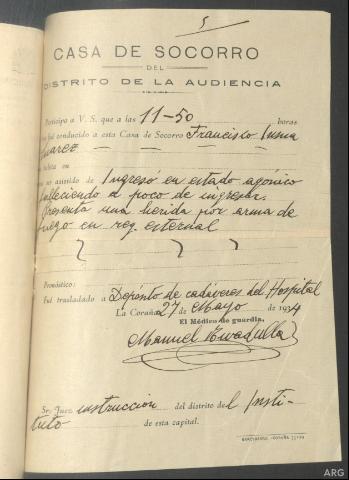 5
CASA DE SOCORRO
DEL
DISTRITO DE LA AUDIENCIA
Participo a V. S. que a las 11-50 horas
fué conducido a esta Casa de Socorro Francisco
uarez
habita en
no asistido de Ingresó en estado agónico
falleciendo a poco de ingresar.
Presenta una herida por arma de
fuego en reg. esternal
Pronóstico:
Fué trasladado a Depósito de cadáveres del Hospital
La Coruña 27 de Mayo de 1934
El Médico de guardia,
Manuel
Sr. Juez instrucción del distrito del Insti-
tuto de esta capital.
ARG